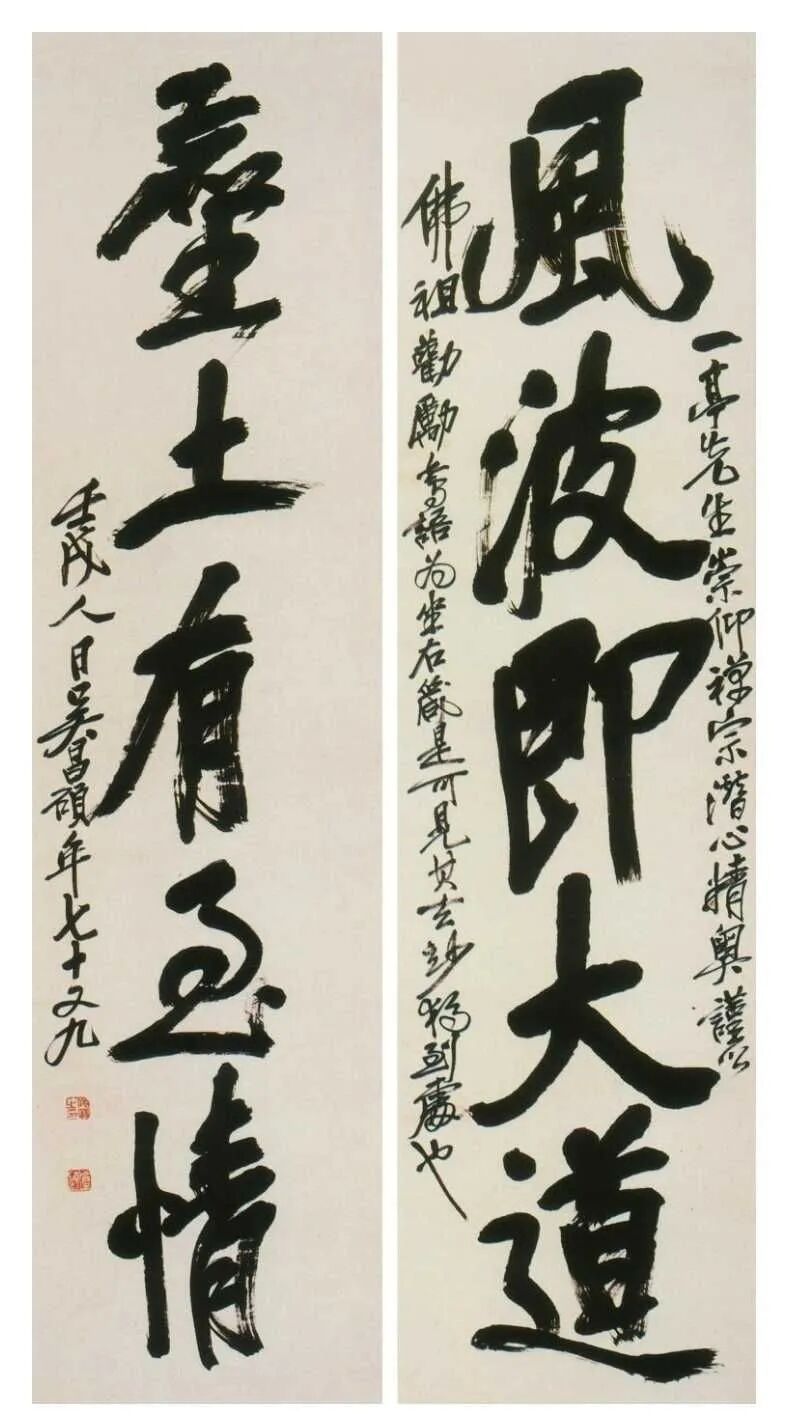 風波即大道
塵土有至情
一亭先生崇仰禪宗潛心精奧謹以
佛祖勸勵語为坐右箴是可見其玄玅獨到處也
壬戌人日吳昌碩年七十又九